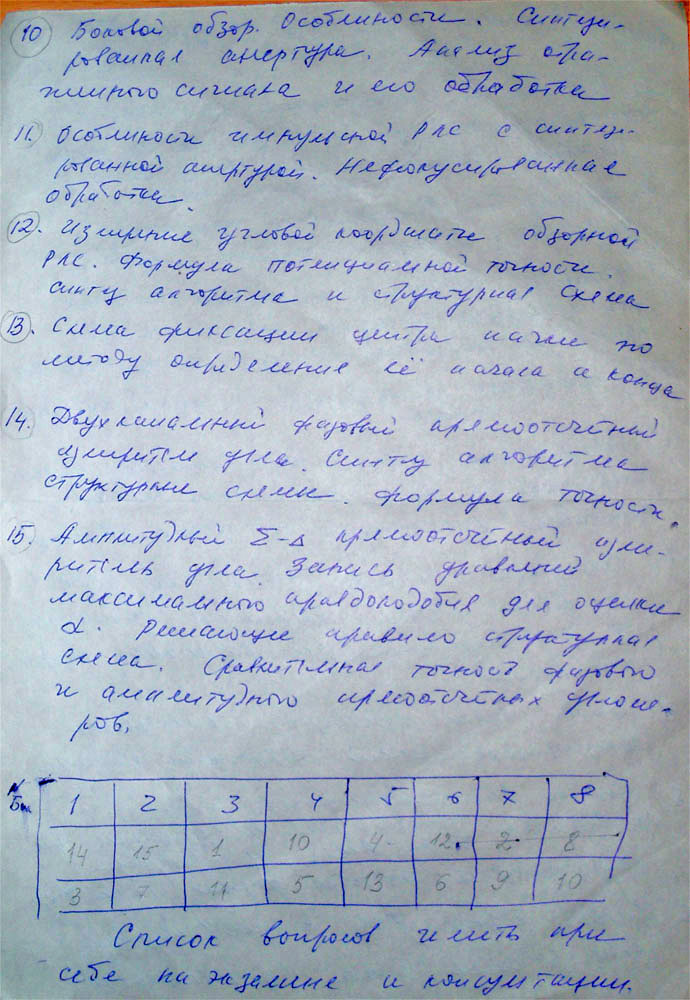 10 Боковой обзор. Особенности. Синтези-
рованная апертура. Анализ отра-
женного сигнала и его обработка
11. Особенности импульсной РЛС с синтези-
рованной апертурой. Нефокусированная
обработка.
12. Измерение угловой координаты обзорной
РЛС. Формула потенциальной точности.
Синтез алгоритма и структурная схема
13. Схема фиксации центра пачки по
методу определения её начала и конца
14. Двухканальный фазовый пеленгационный
измеритель угла. Синтез алгоритма
структурные схемы. Формула точности.
15. Амплитудный Σ-Δ изме-
ритель угла. Запись уравнений
максимального правдоподобия для оценки
α. Решающее правило структурная
схема. Сравнительная точность фазового
и амплитудного угломе-
ров.
№ Б. 1 2 3 4 5 6 7 8
14 15 1 10 4 12 2 8
3 7 11 5 13 6 9 10
Список вопросов иметь при
себе на экзамене и консультации.